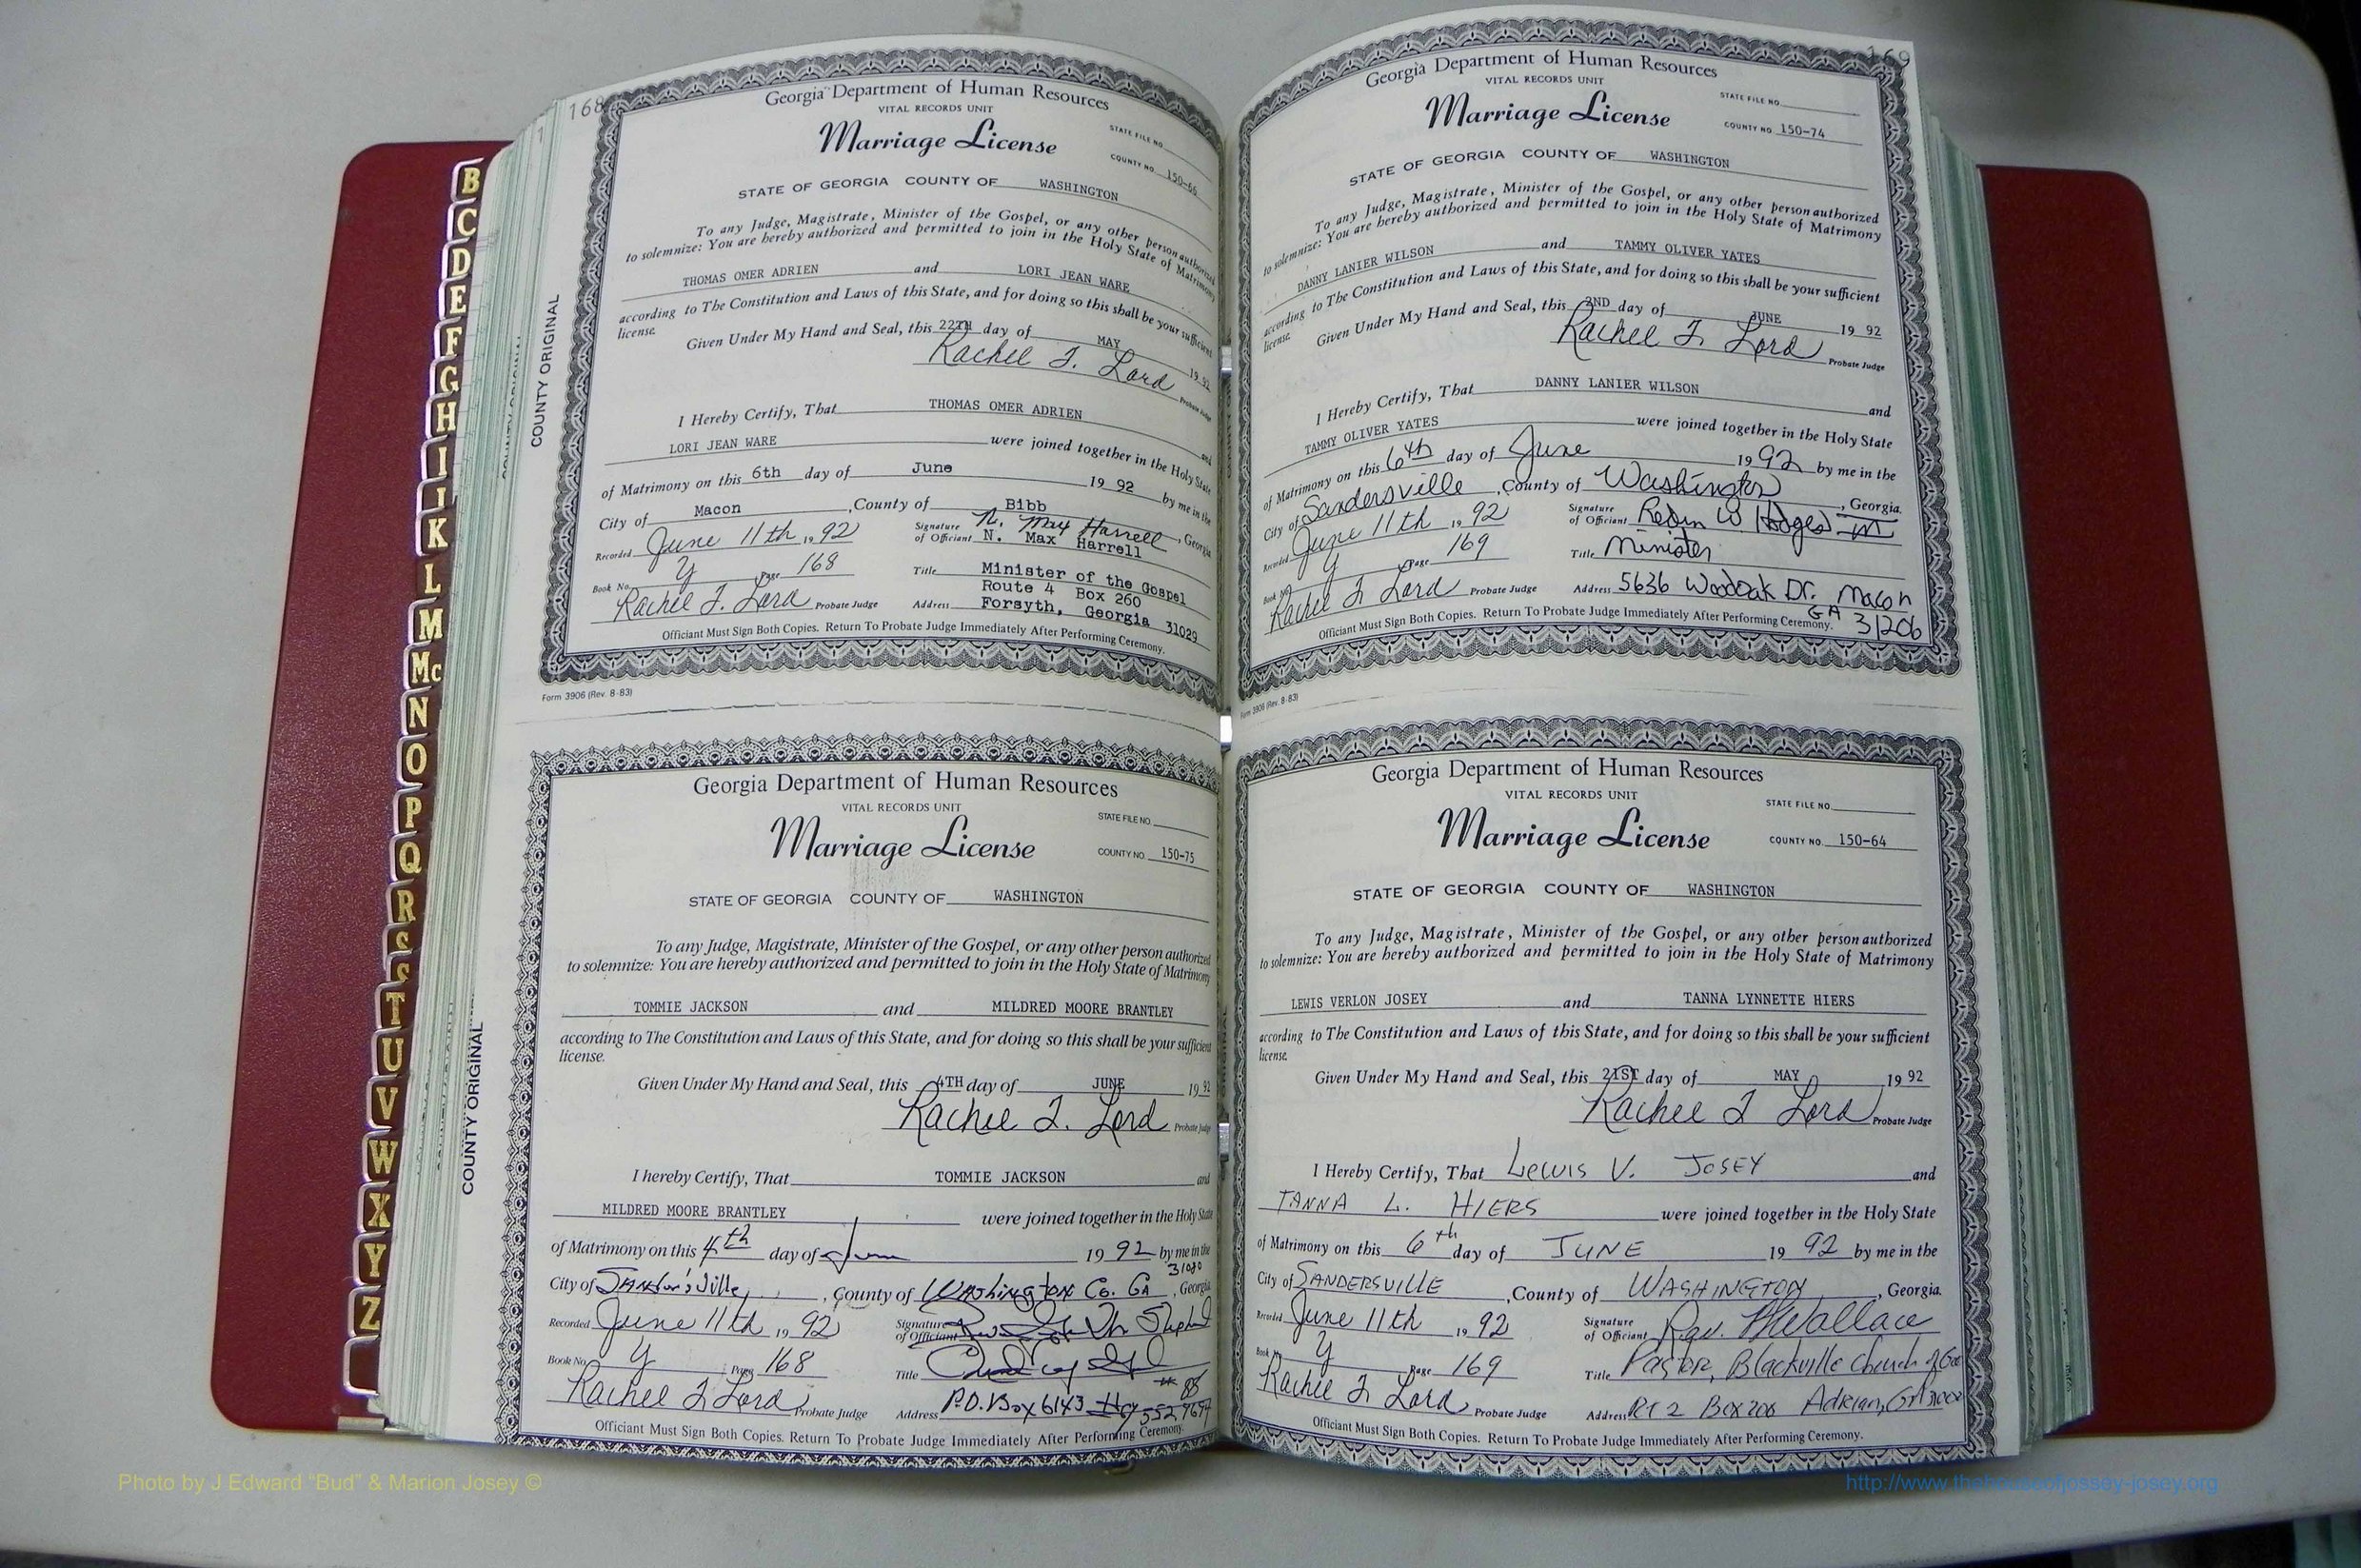 168
Georgia Department of Human Resources
VITAL RECORDS UNIT
Marriage License
STATE FILE NO.
COUNTY NO. 150-66
STATE OF GEORGIA COUNTY OF WASHINGTON
To any Judge, Magistrate, Minister of the Gospel, or any other person authorized
to solemnize: You are hereby authorized and permitted to join in the Holy State of Matrimony
THOMAS OMER ADRIEN and LORI JEAN WARE
according to The Constitution and Laws of this State, and for doing so this shall be your sufficient
license.
Given Under My Hand and Seal, this 22TH day of MAY 19 92
Rachel T. Lord Probate Judge
I Hereby Certify, That THOMAS OMER ADRIEN and
LORI JEAN WARE were joined together in the Holy State
of Matrimony on this 6th day of June 19 92 by me in the
City of Macon, County of Bibb, Georgia
Recorded June 11th, 19 92
Signature of Officiant N. Max Harrell
N. Max Harrell
Book No. Y Page 168
Title Minister of the Gospel
Rachel T. Lord Probate Judge
Address Route 4 Box 260
Forsyth, Georgia 31029
Officiant Must Sign Both Copies. Return To Probate Judge Immediately After Performing Ceremony.
Form 3906 (Rev. 8-83)
COUNTY ORIGINAL
Georgia Department of Human Resources
VITAL RECORDS UNIT
Marriage License
STATE FILE NO.
COUNTY NO. 150-75
STATE OF GEORGIA COUNTY OF WASHINGTON
To any Judge, Magistrate, Minister of the Gospel, or any other person authorized
to solemnize: You are hereby authorized and permitted to join in the Holy State of Matrimony
TOMMIE JACKSON and MILDRED MOORE BRANTLEY
according to The Constitution and Laws of this State, and for doing so this shall be your sufficient
license.
Given Under My Hand and Seal, this 4TH day of JUNE 19 92
Rachel T. Lord Probate Judge
I hereby Certify, That TOMMIE JACKSON and
MILDRED MOORE BRANTLEY were joined together in the Holy State
of Matrimony on this 4th day of June 19 92 by me in the
31080
City of , County of Washington Co. GA, Georgia
Recorded June 11th, 19 92
Signature of Officiant Rev.
Book No. Y Page 168
Title
Rachel T. Lord Probate Judge
Address P.O. Box 6143
Officiant Must Sign Both Copies. Return To Probate Judge Immediately After Performing Ceremony.
COUNTY ORIGINAL
169
Georgia Department of Human Resources
VITAL RECORDS UNIT
Marriage License
STATE FILE NO.
COUNTY NO. 150-74
STATE OF GEORGIA COUNTY OF WASHINGTON
To any Judge, Magistrate, Minister of the Gospel, or any other person authorized
to solemnize: You are hereby authorized and permitted to join in the Holy State of Matrimony
DANNY LANIER WILSON and TAMMY OLIVER YATES
according to The Constitution and Laws of this State, and for doing so this shall be your sufficient
license.
Given Under My Hand and Seal, this 2ND day of JUNE 19 92
Rachel T. Lord Probate Judge
I Hereby Certify, That DANNY LANIER WILSON and
TAMMY OLIVER YATES were joined together in the Holy State
of Matrimony on this 6th day of June 19 92 by me in the
City of Sandersville, County of Washington, Georgia.
Recorded June 11th, 19 92
Signature of Officiant W Hodges
Book No. Y Page 169
Title Minister
Rachel T. Lord Probate Judge
Address 5636 Woodoak Dr. Macon
GA 31206
Officiant Must Sign Both Copies. Return To Probate Judge Immediately After Performing Ceremony.
Form 3906 (Rev. 8-83)
Georgia Department of Human Resources
VITAL RECORDS UNIT
Marriage License
STATE FILE NO.
COUNTY NO. 150-64
STATE OF GEORGIA COUNTY OF WASHINGTON
To any Judge, Magistrate, Minister of the Gospel, or any other person authorized
to solemnize: You are hereby authorized and permitted to join in the Holy State of Matrimony
LEWIS VERLON JOSEY and TANNA LYNNETTE HIERS
according to The Constitution and Laws of this State, and for doing so this shall be your sufficient
license.
Given Under My Hand and Seal, this 21ST day of MAY 19 92
Rachel T Lord Probate Judge
I Hereby Certify, That Lewis V. Josey and
TANNA L. HIERS were joined together in the Holy State
of Matrimony on this 6th day of JUNE 19 92 by me in the
City of SANDERSVILLE, County of WASHINGTON, Georgia.
Recorded June 11th, 19 92
Signature of Officiant Rev. Wallace
Book No. Y Page 169
Title Pastor, Blackville Church of God
Rachel T. Lord Probate Judge
Address Rt 2 Box 208 Adrian, GA
Officiant Must Sign Both Copies. Return To Probate Judge Immediately After Performing Ceremony.
B
C
D
E
F
G
H
I
J
K
L
M
Mc
N
O
P
Q
R
S
T
U
V
W
X
Y
Z
Photo by J Edward "Bud" & Marion Josey ©
http://www.thehouseofjossey-josey.org